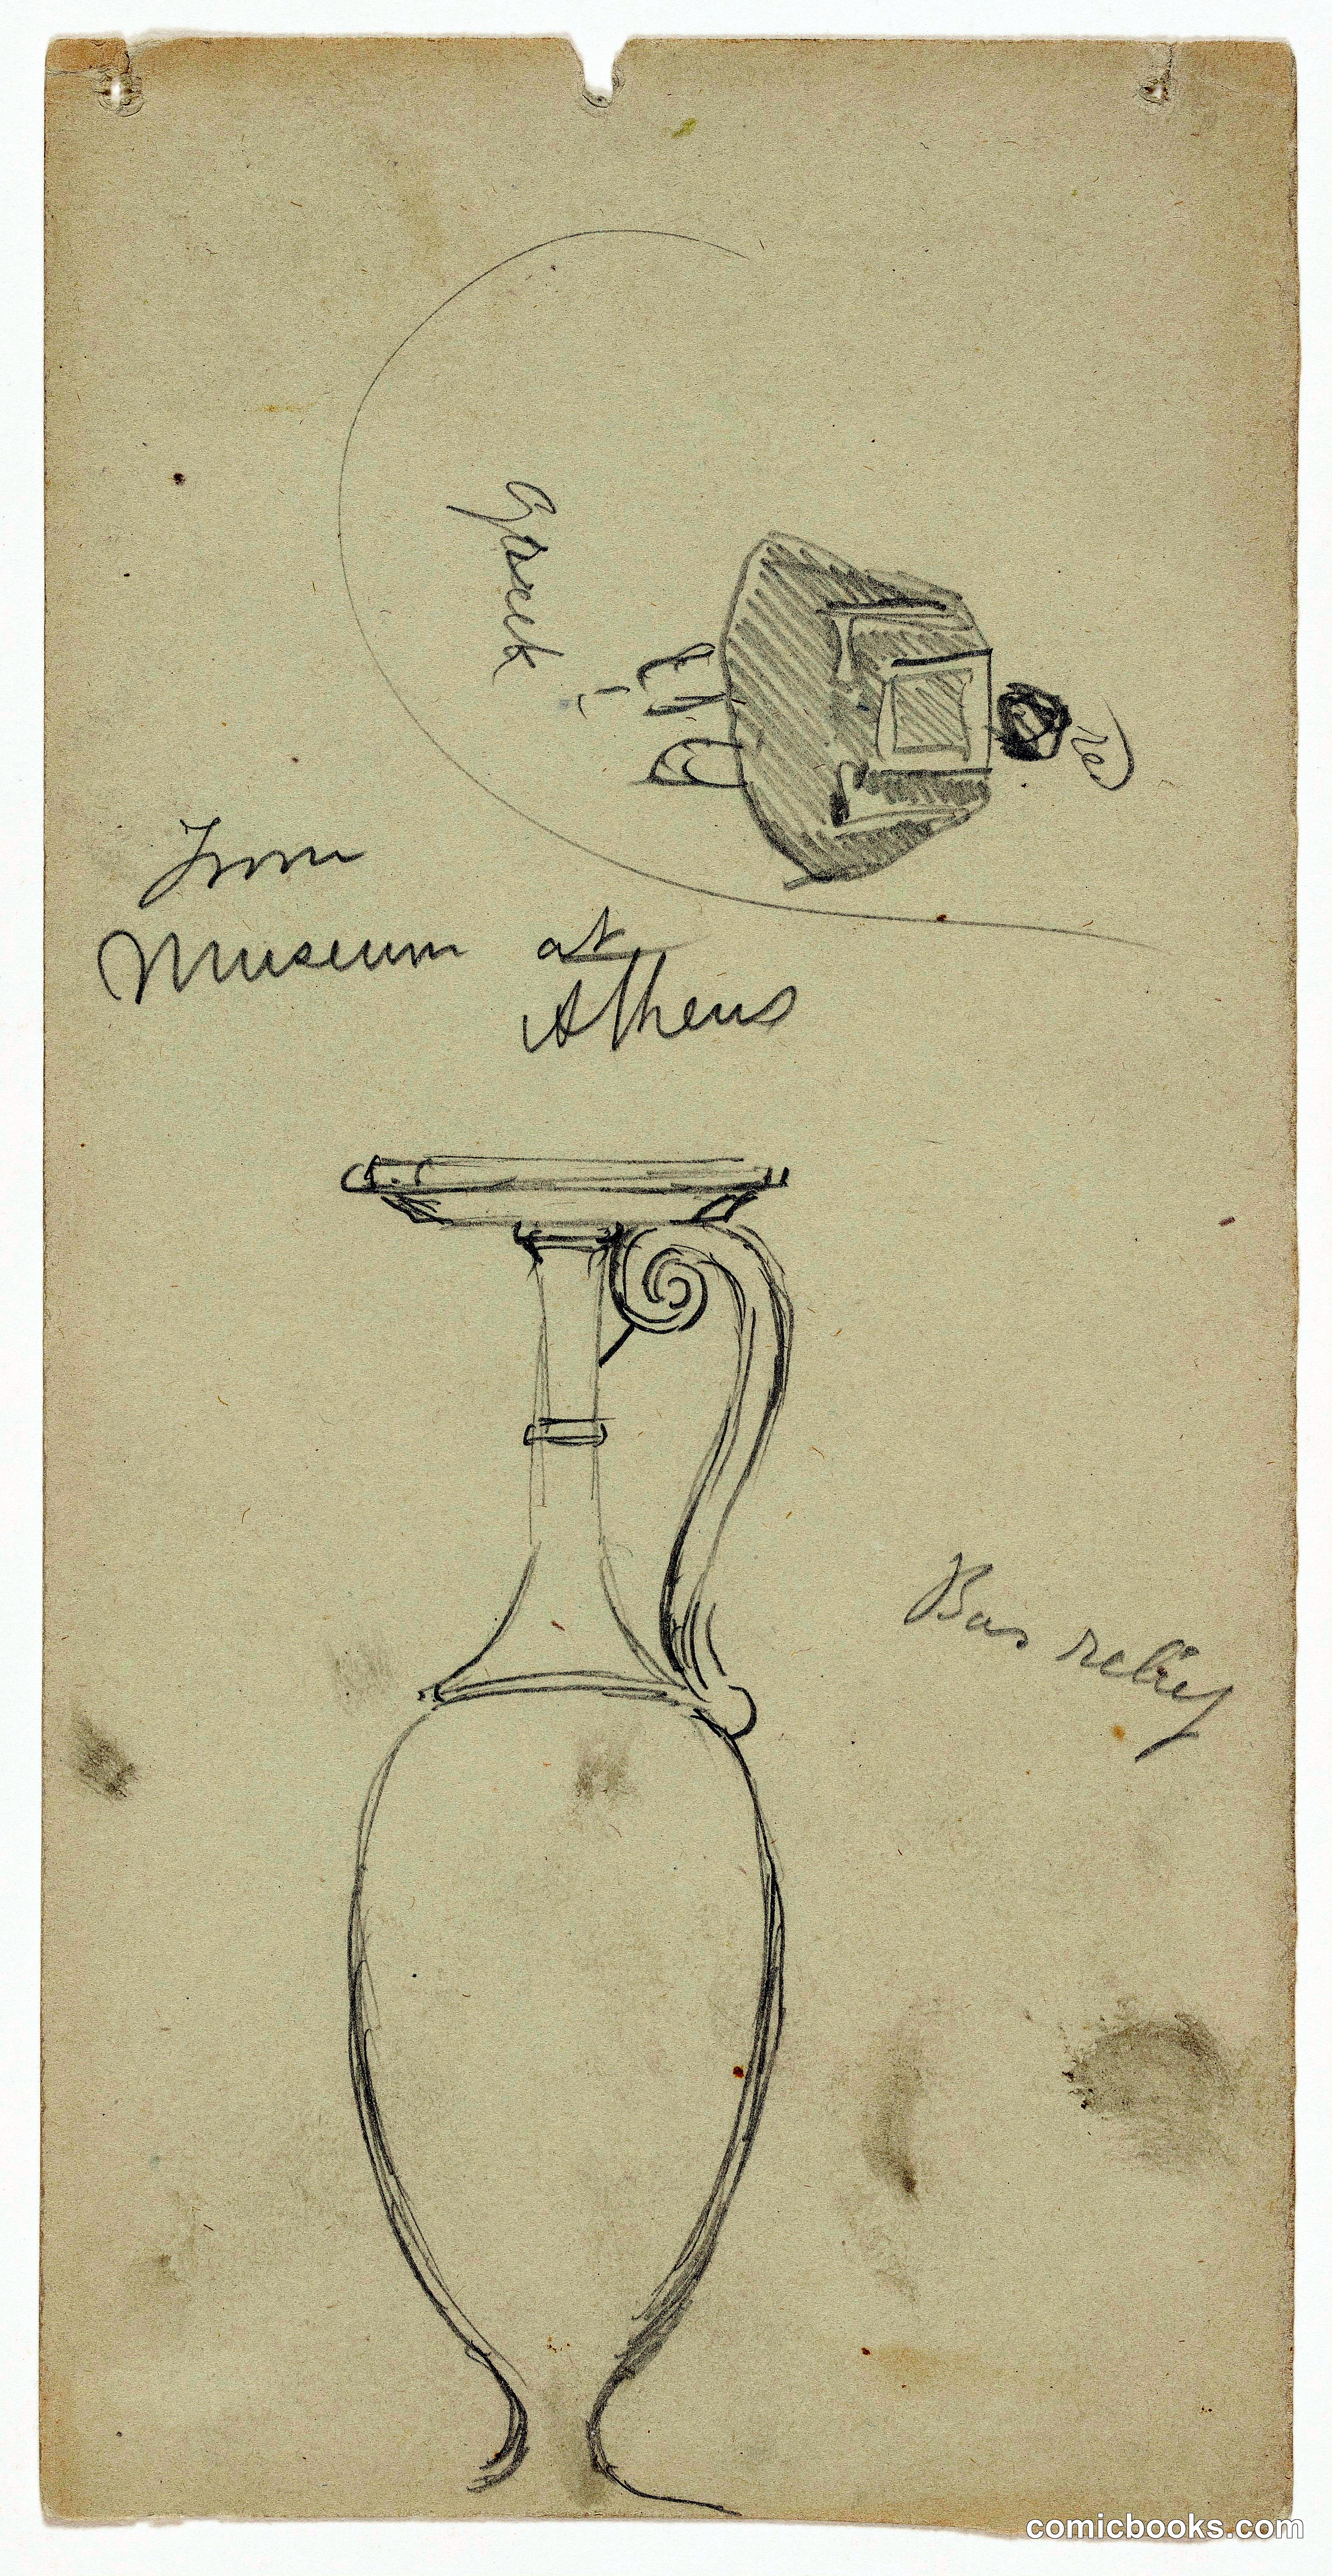 Greek
From
Museum at
Athens
Bas relief
comicbooks.com